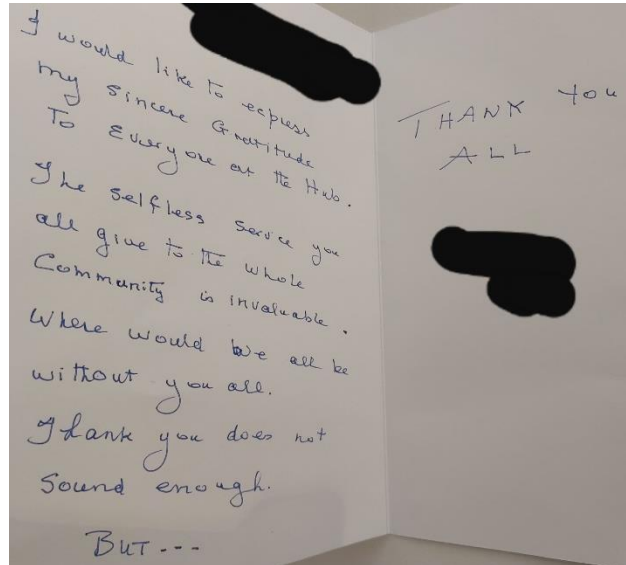 I would like to express
my sincere Gratitude
To Everyone at the Hub.
The selfless service you
all give to the whole
Community is invaluable.
Where would we all be
without you all.
Thank you does not
Sound enough.
BUT---
THANK You
ALL